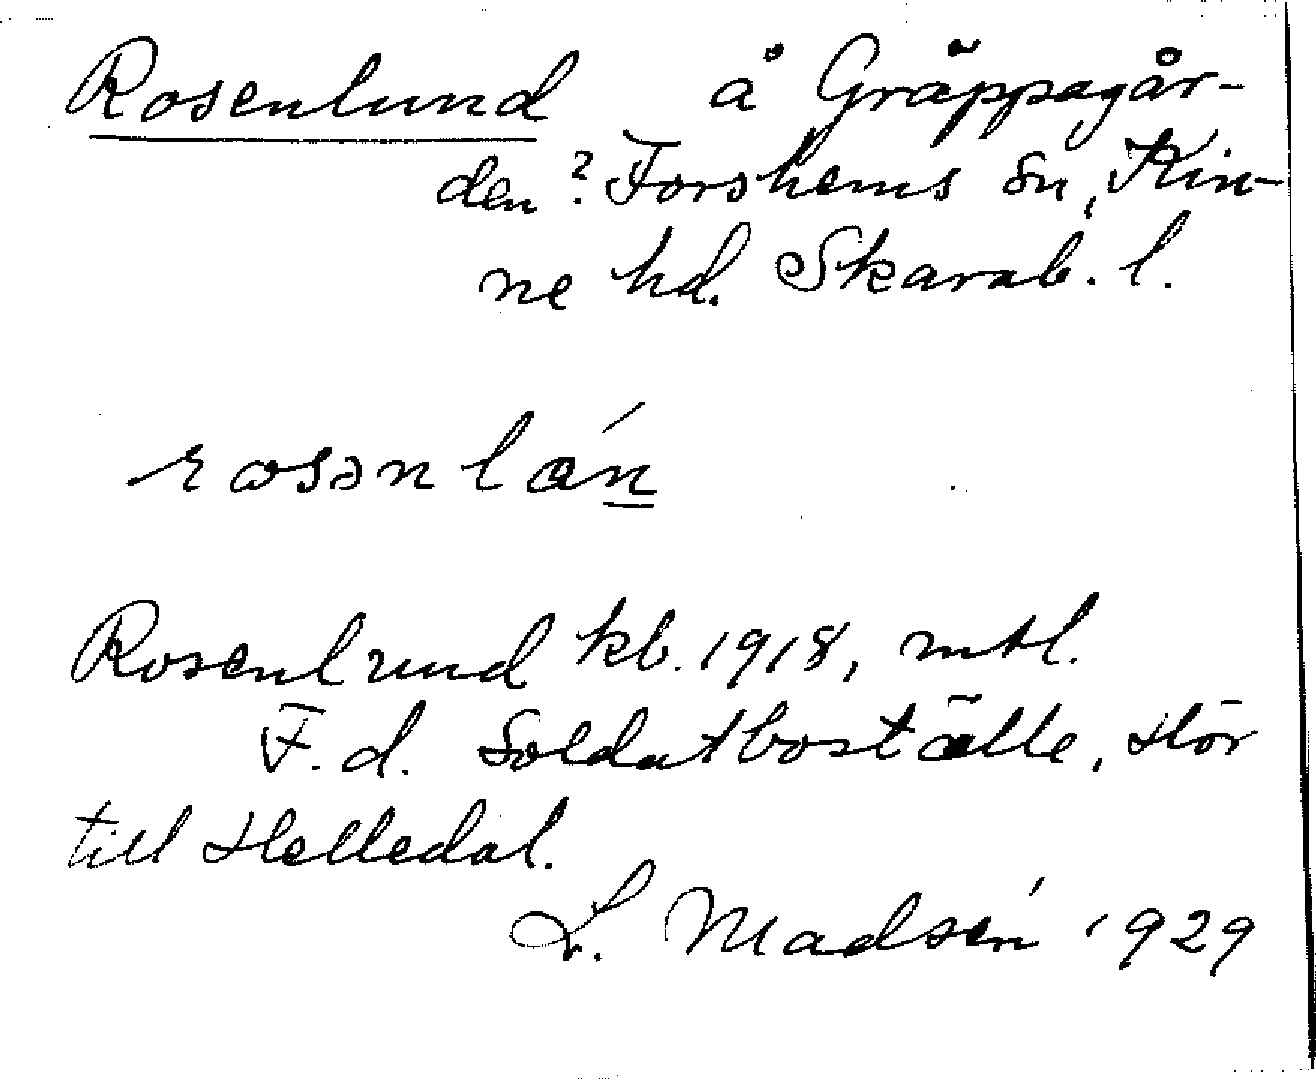 Rosenlund å Gräppagår-
den? Forshems sn, Kin-
ne hd. Skarab. l.
rosənlán
Rosenlund kb. 1918, mtl.
F.d. Soldatboställe, Hör
till Helledal.
L. Madsén 1929